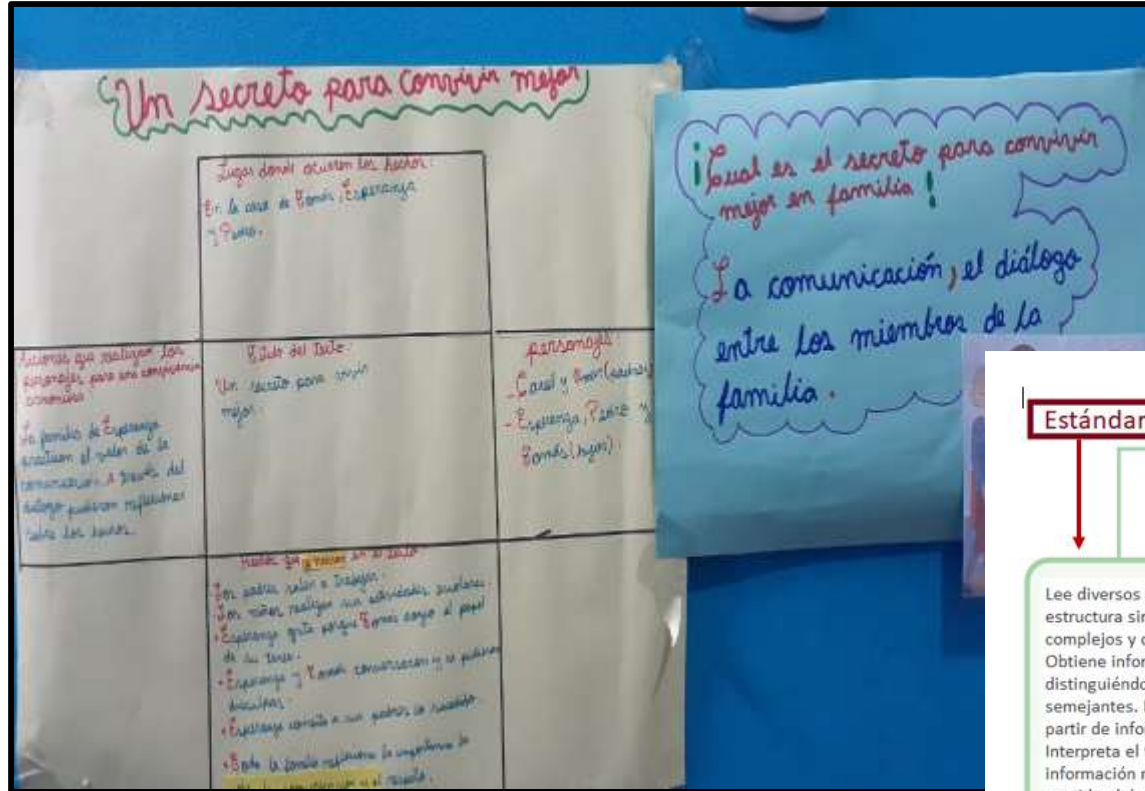 Un secreto para convivir mejor
Lugar donde ocurren los hechos:
En la casa de Tomás, Esperanza
y Pedro.
Acciones que realizan los
personajes para una convivencia
armónica
La familia de Esperanza
practican el valor de la
comunicación. A través del
diálogo pudieron reflexionar
sobre los hechos.
Título del texto:
Un secreto para vivir
mejor.
personajes:
- Carol y (padres)
- Esperanza, Pedro y
Tomás (hijos).
Hechos que en el texto:
Los padres salen a trabajar.
Los niños realizan sus actividades escolares.
• Esperanza grita porque Tomás cogió el papel
de su tarea.
• Esperanza y Tomás conversaron y se pidieron
disculpas
• Esperanza comenta a sus padres lo sucedido
• Toda la familia reflexiona la importancia de
de la y el respeto.
¡Cual es el secreto para convivir
mejor en familia!
La comunicación, el diálogo
entre los miembros de la
familia.
Estándar
Lee diversos
estructura sim
complejos y
Obtiene infor
distinguiéndo
semejantes.
partir de info
Interpreta el
información